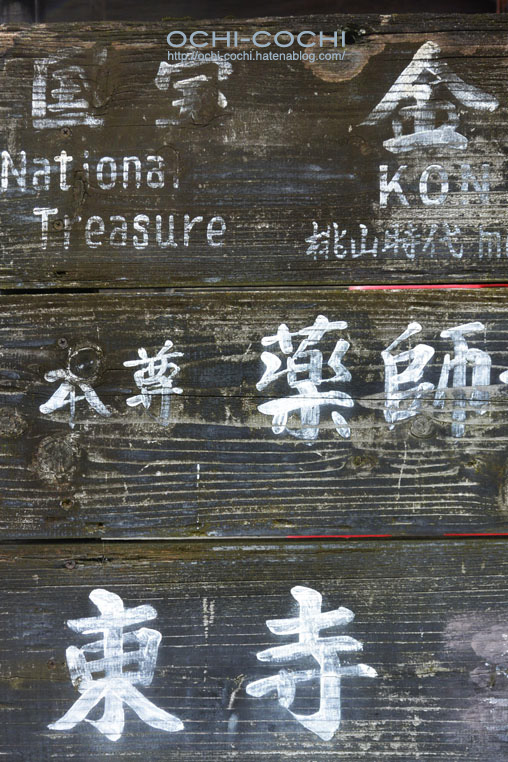 OCHI-COCHI
http://ochi-cochi.hatenablog.com/
国宝 金
National KON
Treasure 桃山時代 m
本尊 薬師
東寺